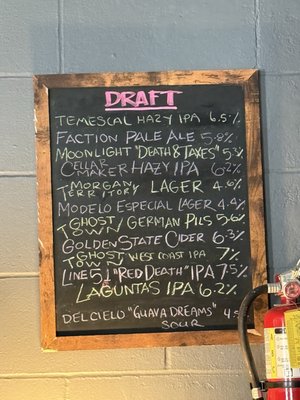 DRAFT
TEMESCAL HAZY IPA 6.5%
FACTION PALE ALE 5.8%
MOONLIGHT "DEATH & TAXES" 5%
CELLAR MAKER HAZY IPA 6.2%
MORGAN TERRITORY LAGER 4.8%
MODELO ESPECIAL LAGER 4.4%
GHOST TOWN GERMAN PILS 5.6%
GOLDEN STATE CIDER 6.3%
GHOST TOWN WEST COAST IPA 7%
LINE 51 "RED DEATH" IPA 7.5%
LAGUNTAS IPA 6.2%
DEL CIELO "GUAVA DREAMS" SOUR